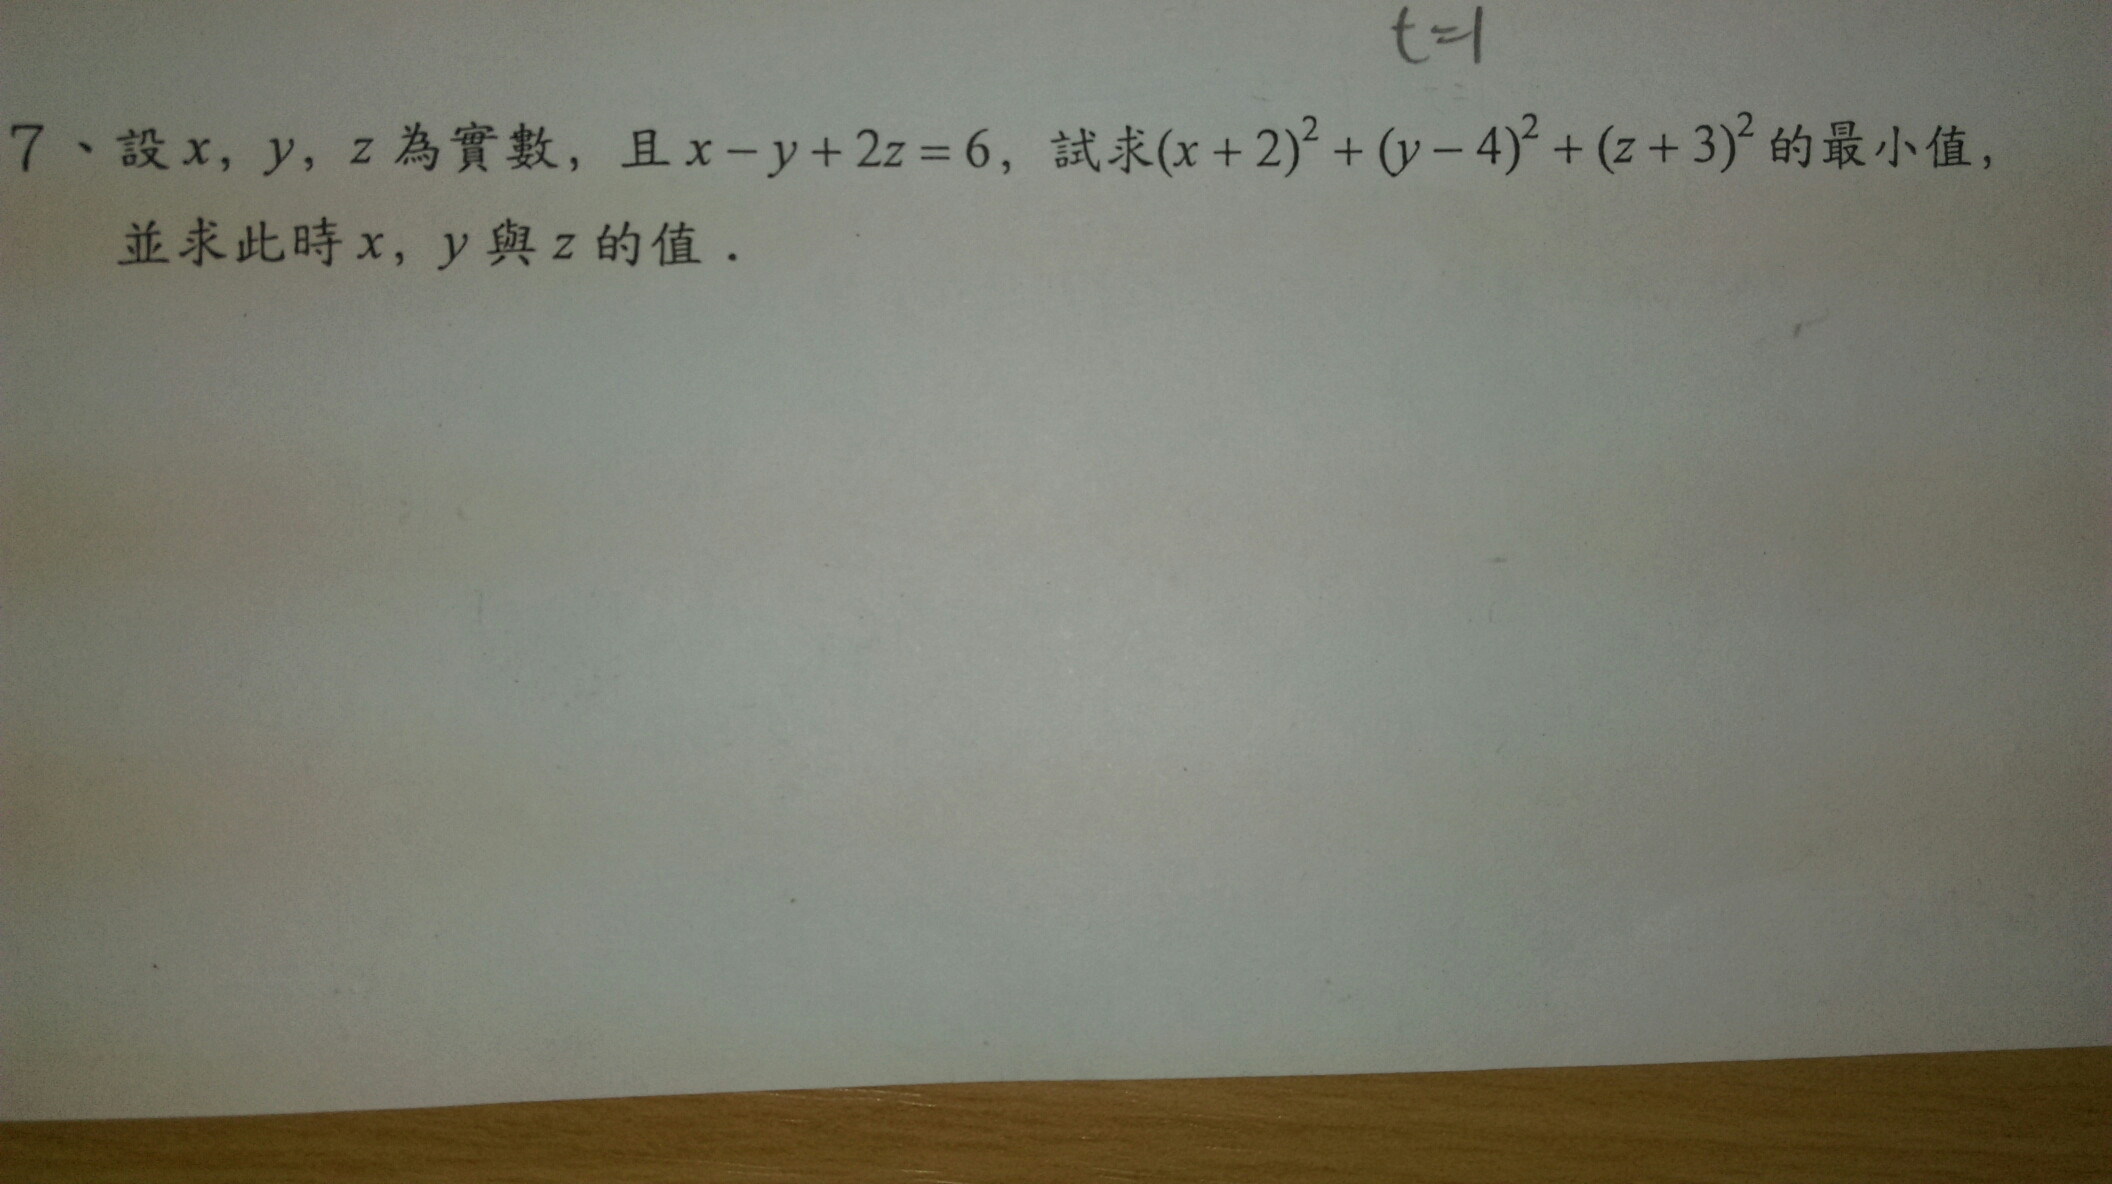 t=1
7、設 x, y, z 為實數, 且 x − y + 2z = 6, 試求(x + 2)² + (y − 4)² + (z + 3)² 的最小值,
並求此時 x, y 與 z 的值．